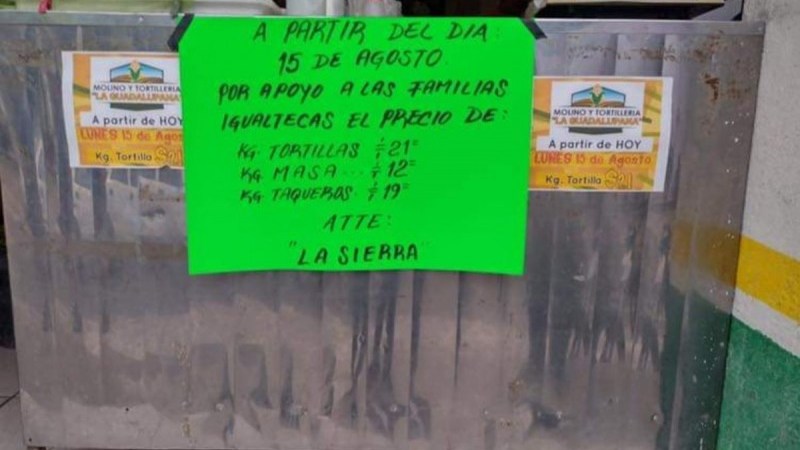 A PARTIR DEL DIA:
15 DE AGOSTO
POR APOYO A LAS FAMILIAS
IGUALTECAS EL PRECIO DE:
KG. TORTILLAS $21=
KG. MASA... $12=
KG. TAQUEROS. $19=
ATTE:
"LA SIERRA"
MOLINO Y TORTILLERIA
"LA GUADALUPANA"
A partir de HOY
LUNES 15 de Agosto
Kg. Tortilla $21
MOLINO Y TORTILLERIA
"LA GUADALUPANA"
A partir de HOY
LUNES 15 de Agosto
Kg. Tortilla $21